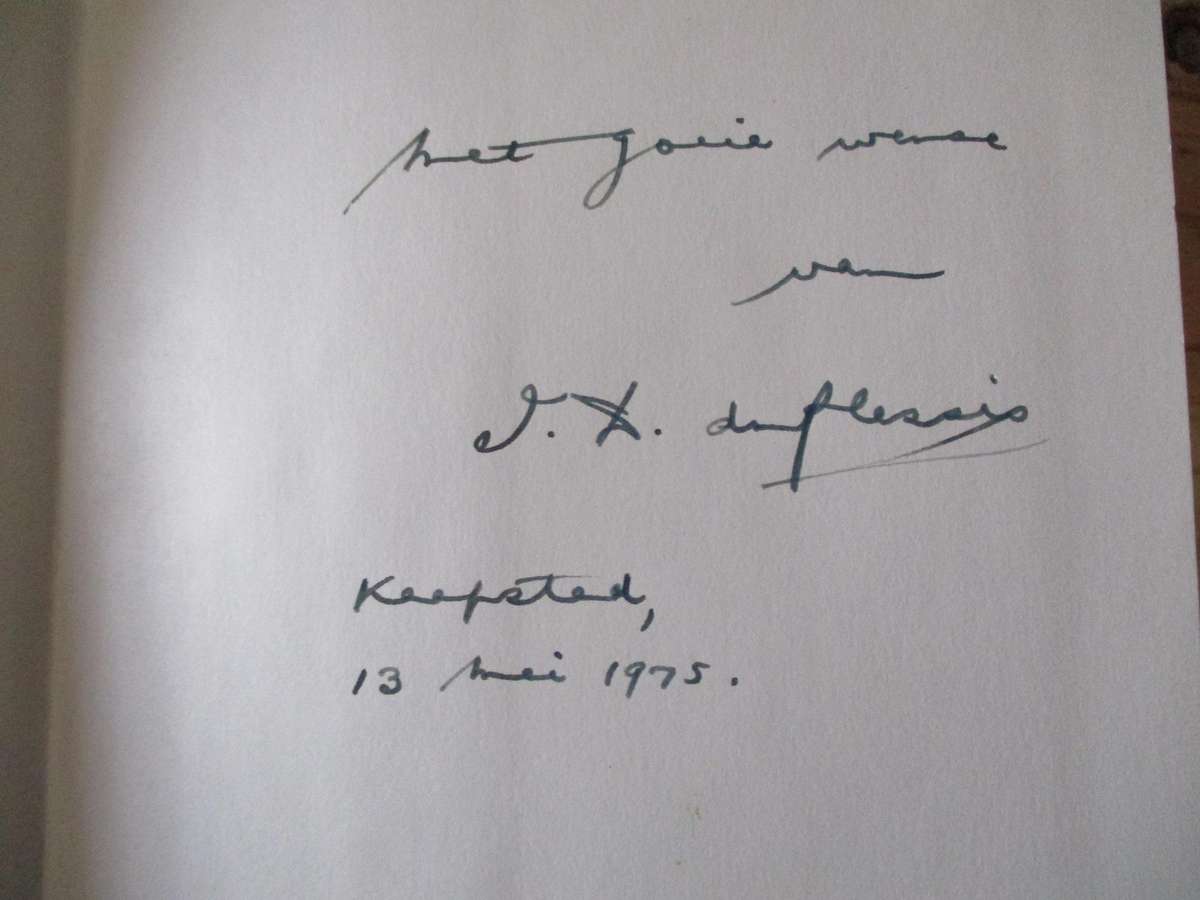 Met goeie wense
van
I. D. du Plessis
Kaapstad,
13 Mei 1975.